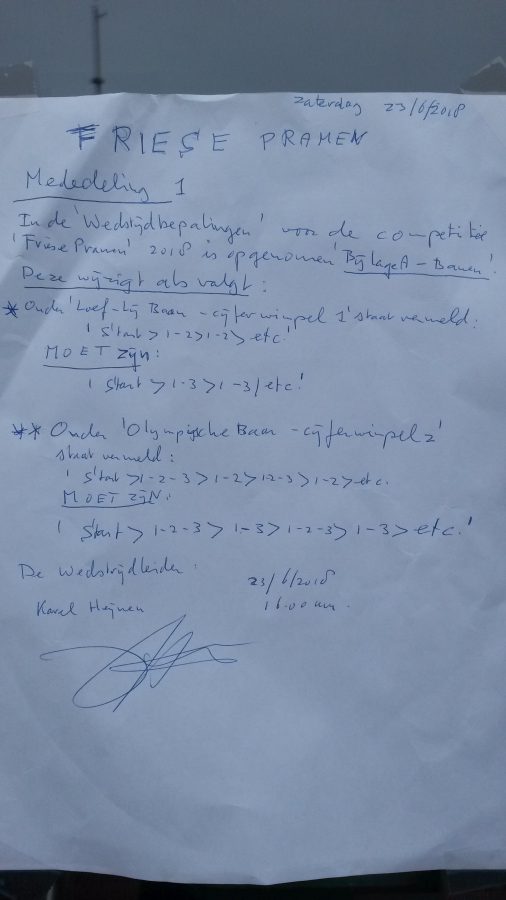 zaterdag 23/6/2018
FRIESE PRAMEN
Mededeling 1
In de 'Wedstrijdbepalingen' voor de competitie
'Friese Pramen' 2018 is opgenomen 'Bijlage A - Banen'.
Deze wijzigt als volgt:
* Onder 'Loef-Lij Baan - cijferwimpel 1' staat vermeld:
'Start > 1-2 > 1-2 > etc.'
MOET zijn:
'Start > 1-3 > 1-3 / etc.'
** Onder 'Olympische Baan - cijferwimpel 2'
staat vermeld:
'Start > 1-2-3 > 1-2 > 12-3 > 1-2 > etc.
MOET ZIJN:
'Start > 1-2-3 > 1-3 > 1-2-3 > 1-3 > etc.'
De Wedstrijdleider:
23/6/2018
Karel Heijnen
16.00 uur.